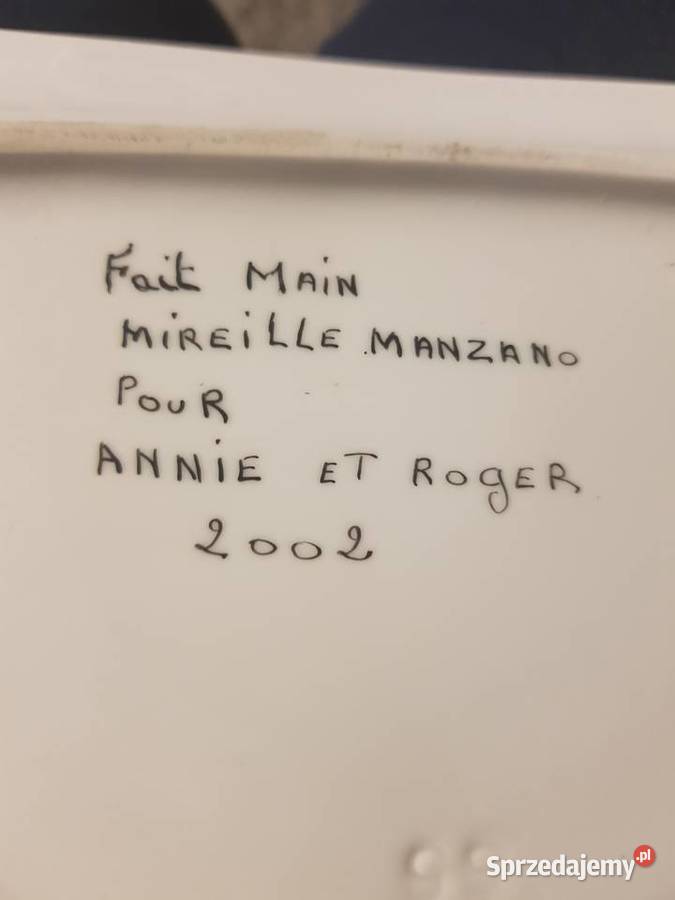 Fait MAiN
MiREiLLE MANZANO
POUR
ANNiE ET ROgER
2002
Sprzedajemy.pl